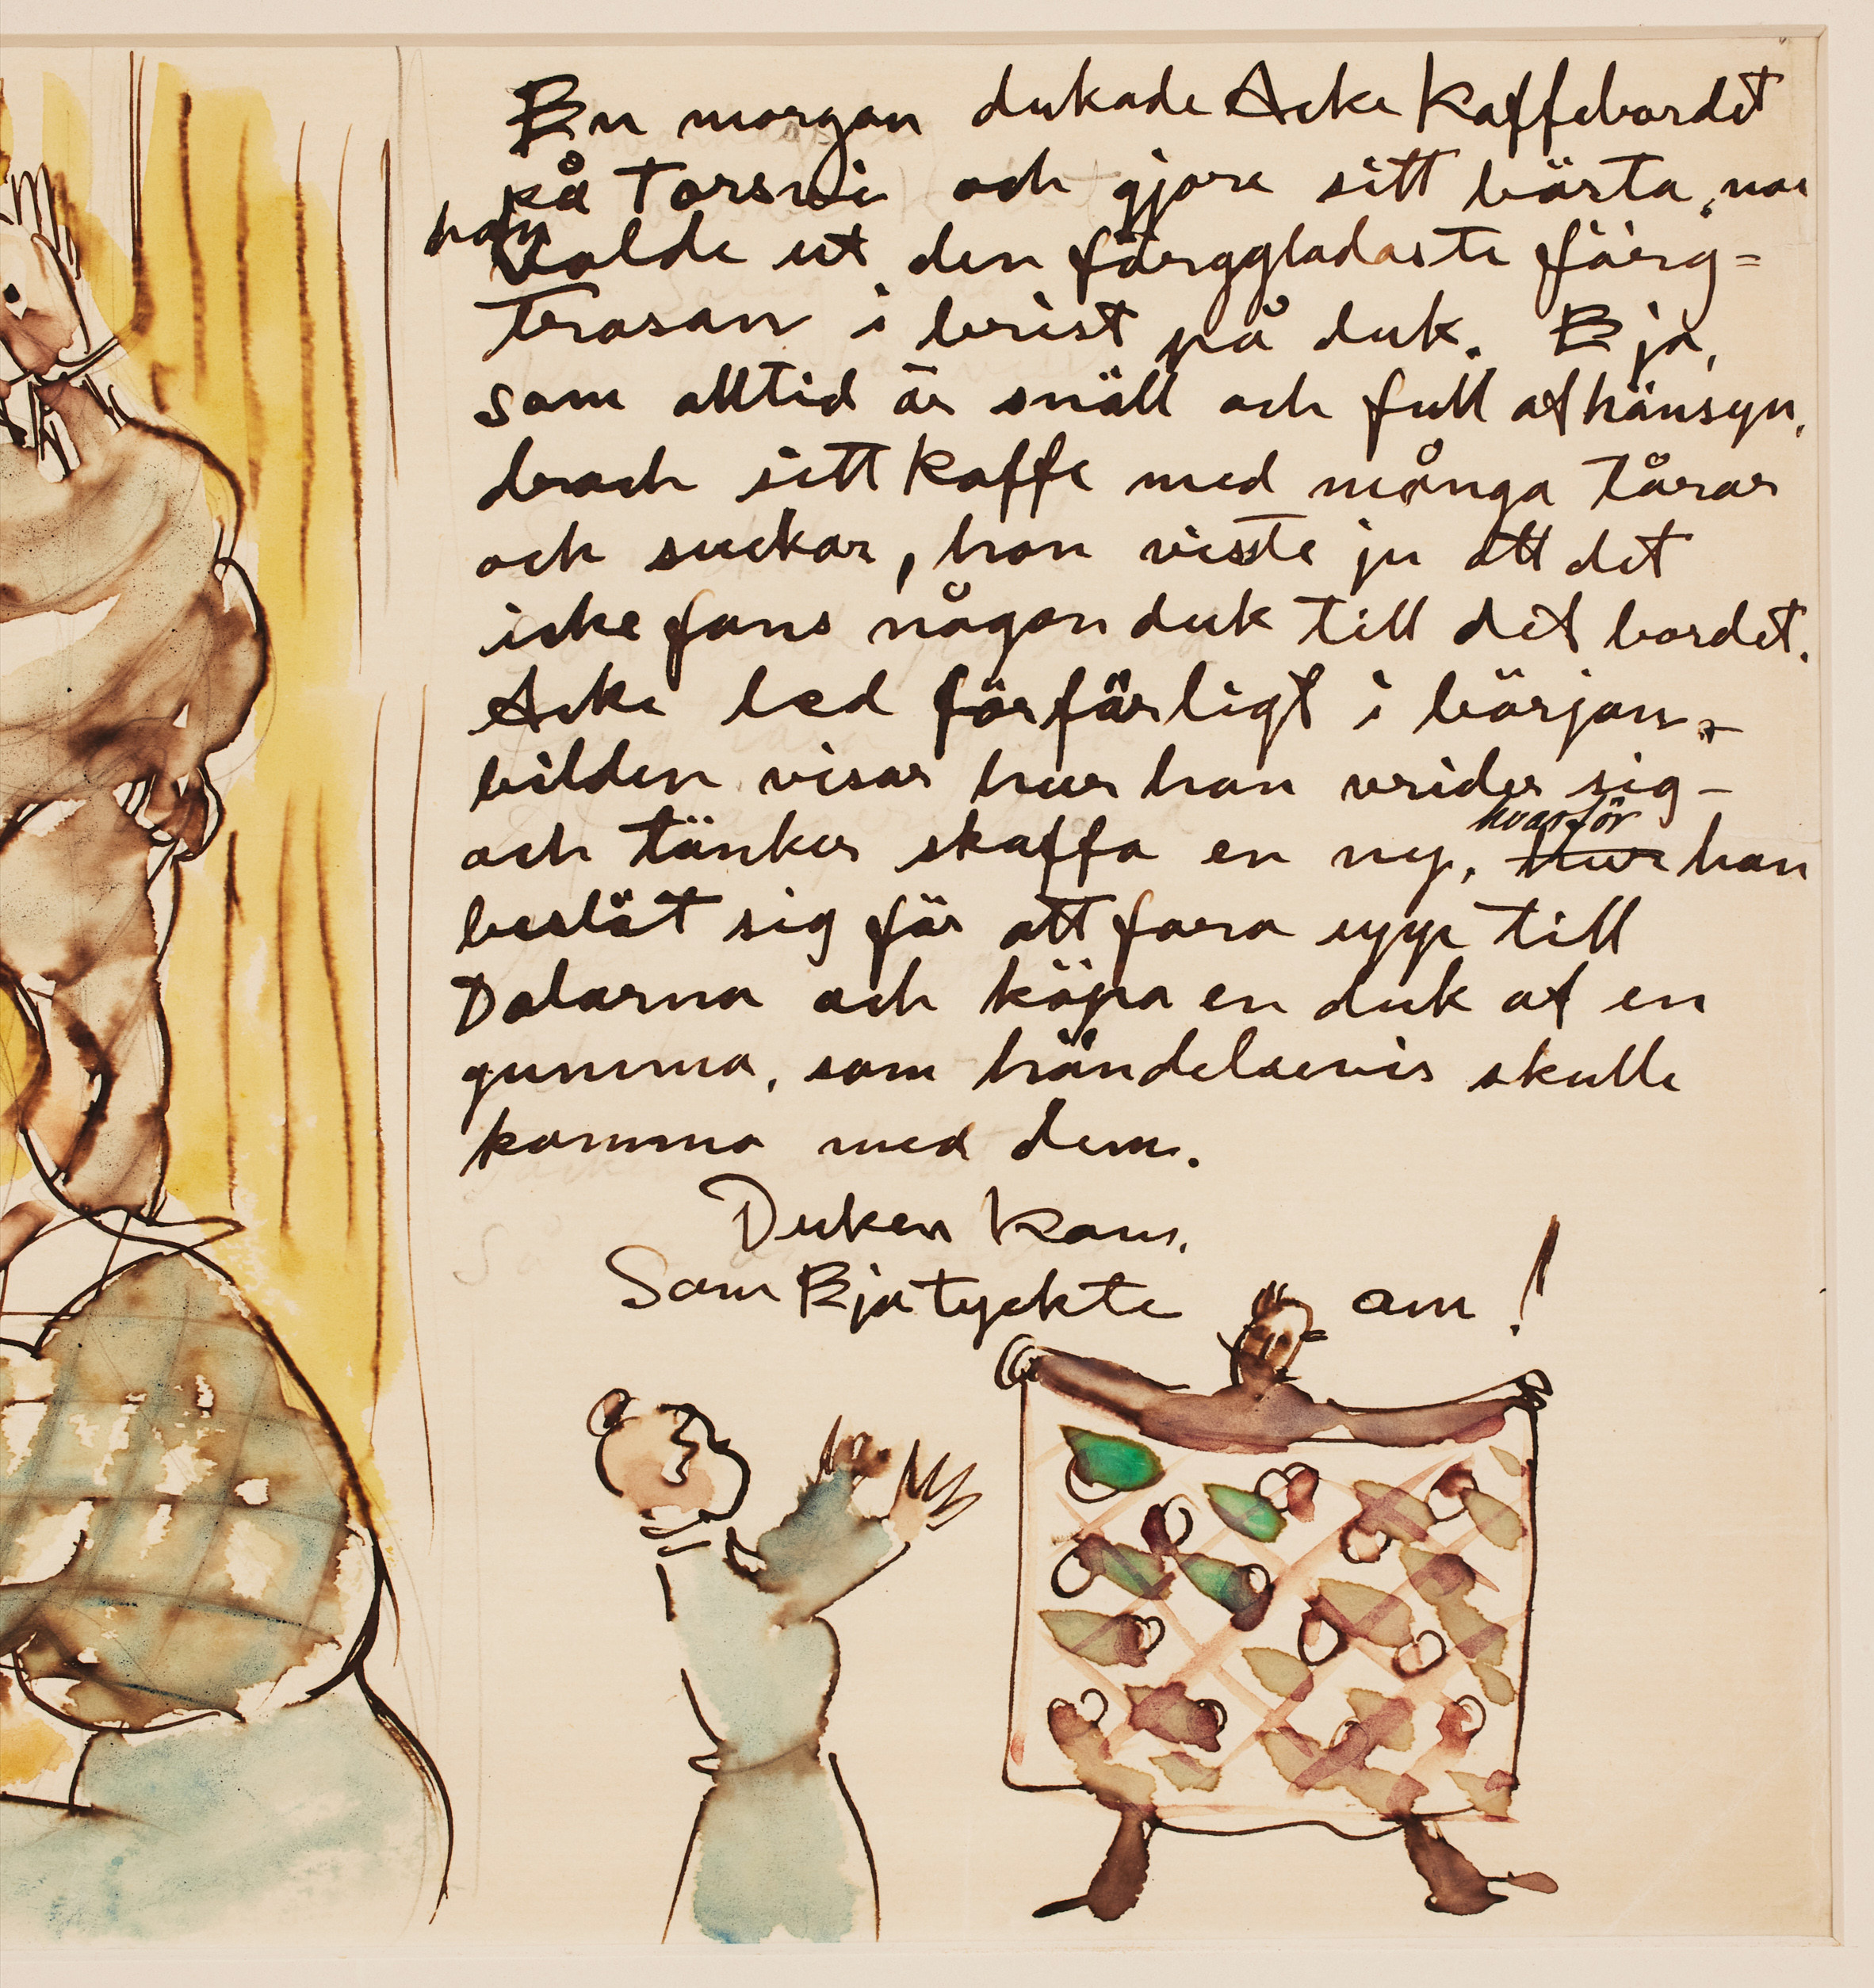 En morgon dukade Acke Kaffebordet
på Torsvi och gjore sitt bästa, när
han valde ut den färggladaste färg=
trasan i brist på duk. Eja,
som alltid är snäll och full af hänsyn,
drack sitt Kaffe med många tårar
och suckar, hon visste ju att det
icke fans någon duk till det bordet.
Acke led förfärligt i början, –
bilden visar hur han vrider sig –
och tänker skaffa en ny, hvarför
hur han
beslöt sig för att fara upp till
Dalarna och köpa en duk af en
gumma, som händelsevis skulle
komma med dem.
Duken kom,
Som Eja tyckte om!